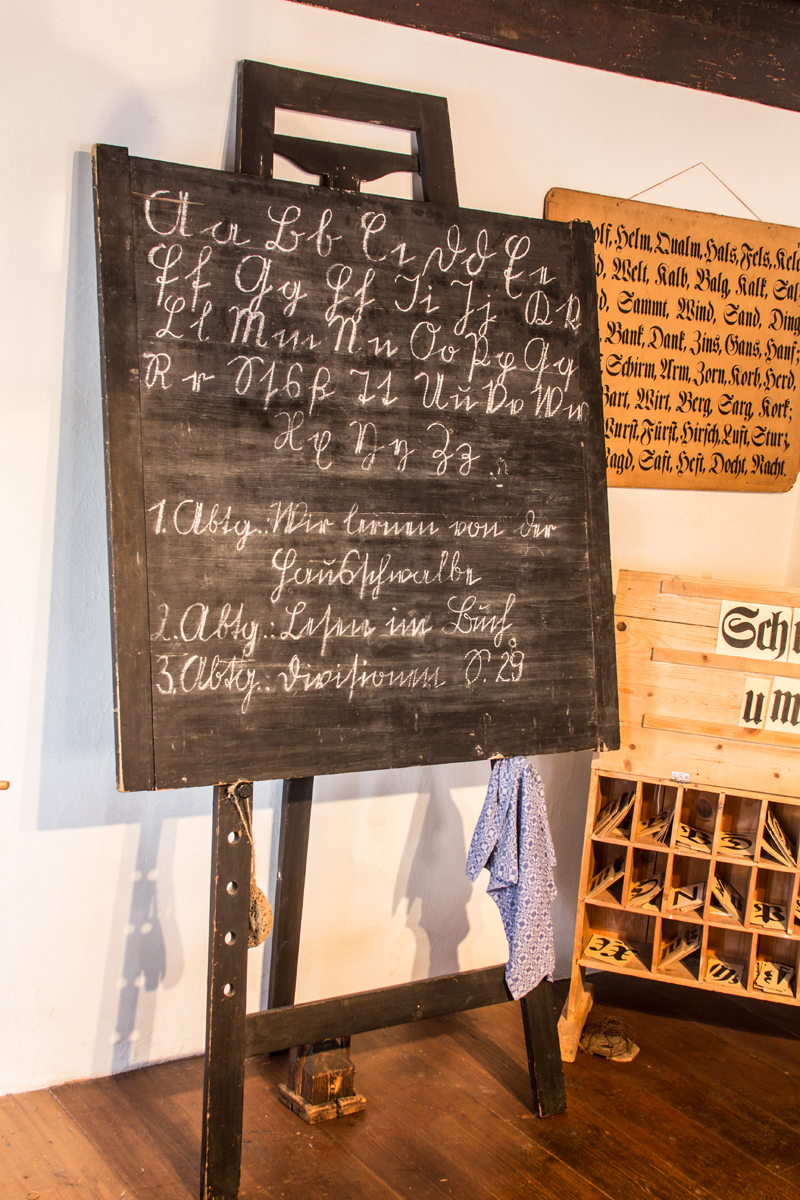 A a B b C c D d E e
F f G g H h I i J j K k
L l M m N n O o P p Q q
R r S ſ s ß T t U u V v W w
X x Y y Z z
1. Abtg.: Wir lernen von der
Hausschwalbe
2. Abtg.: Lesen im Buch
3. Abtg.: Divisionen S. 29
Helm, Qualm, Hals, Fels,
Welt, Kalb, Balg, Kalk,
Sammt, Wind, Sand, Ding
Bank, Dank, Zins, Gans, Hanf;
Schirm, Arm, Zorn, Korb, Herd,
Bart, Wirt, Berg, Sarg, Kork;
Wurſt, Fürſt, Hirſch, Luft, Sturz,
Magd, Saft, Heft, Docht, Macht.
Sch
um